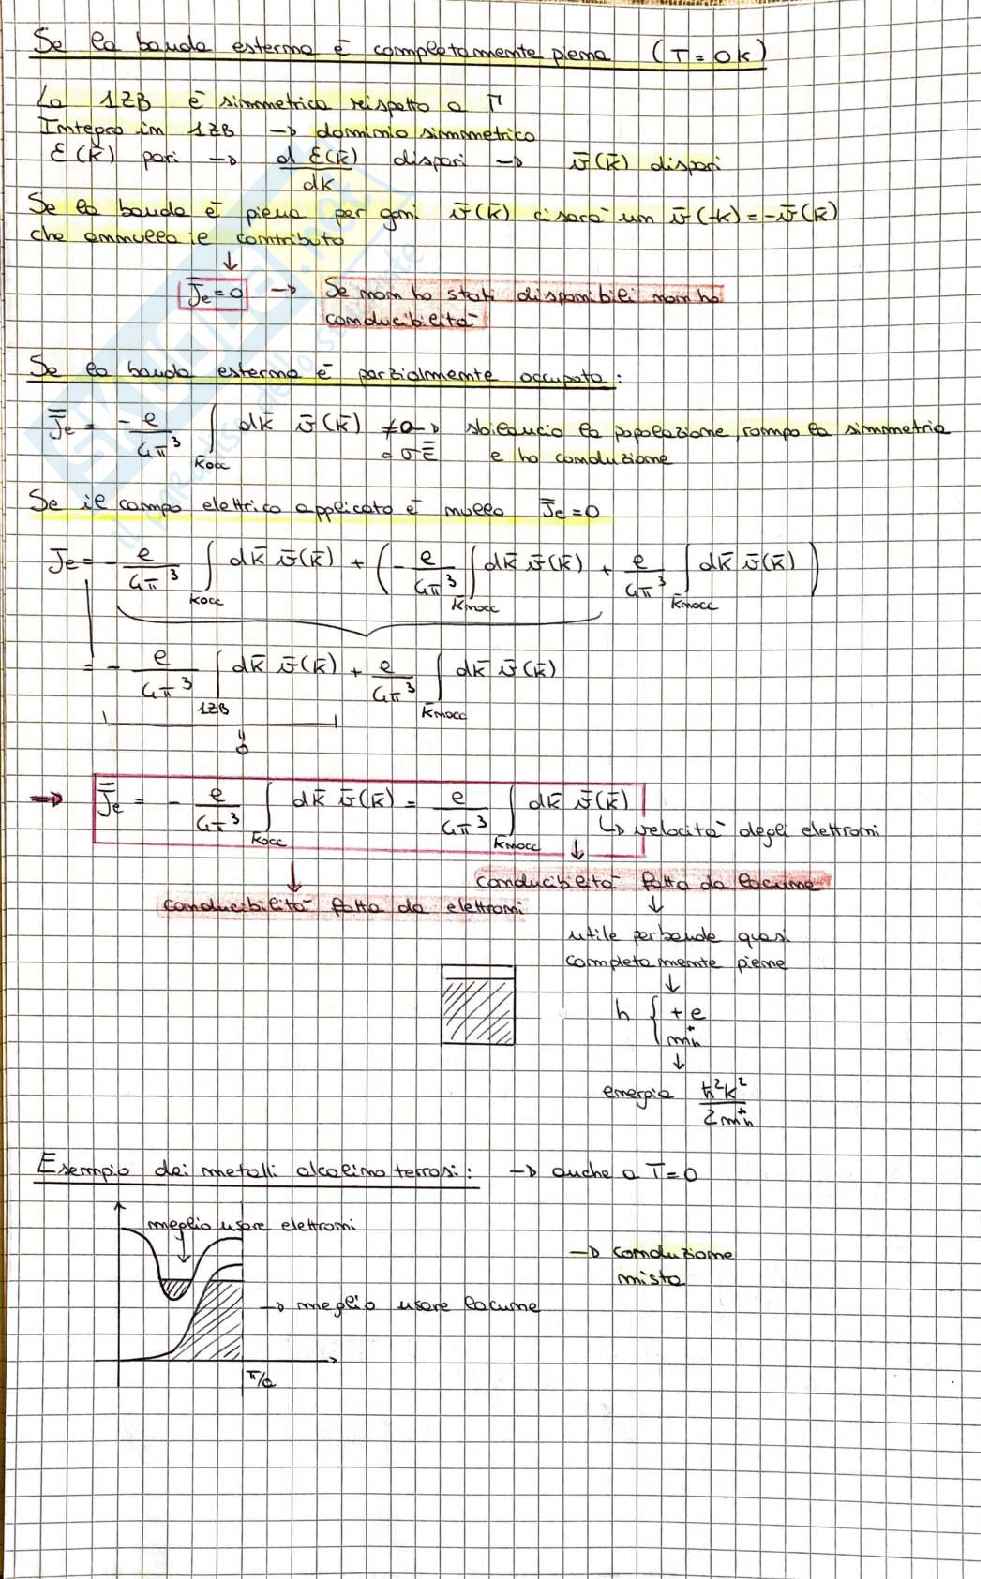 Se la banda esterna è completamente piena (T=0K)
La 1ZB è simmetrica rispetto a Γ
Integro in 1ZB → dominio simmetrico
Ɛ(k̄) pari → dƐ(k̄)/dk dispari → v̄(k̄) dispari
Se la banda è piena per ogni v̄(k̄) ci sarà un v̄(-k) = -v̄(k̄)
che annulla il contributo
↓
J̄e=0 → Se non ho stati disponibili non ho
conducibilità
Se la banda esterna è parzialmente occupata:
J̄e = -e/4π³ ∫kocc dk̄ v̄(k̄) ≠0 → sbilancio la popolazione, rompo la simmetria
e ho conduzione
Se il campo elettrico applicato è nullo J̄e=0
Je = -e/4π³ ∫kocc dk̄ v̄(k̄) + (-e/4π³ ∫knocc dk̄ v̄(k̄) + e/4π³ ∫knocc dk̄ v̄(k̄))
= -e/4π³ ∫1ZB dk̄ v̄(k̄) + e/4π³ ∫knocc dk̄ v̄(k̄)
0
→ J̄e = -e/4π³ ∫kocc dk̄ v̄(k̄) = e/4π³ ∫knocc dk̄ v̄(k̄)
↳ velocità degli elettroni
conducibilità fatta da lacune
conducibilità fatta da elettroni
utile per bande quasi
completamente piene
h { +e
m*h
energia ħ²k²/2m*h
Esempio dei metalli alcalino terrosi: → anche a T=0
meglio usare elettroni
→ conduzione
mista
→ meglio usare lacune
π/a